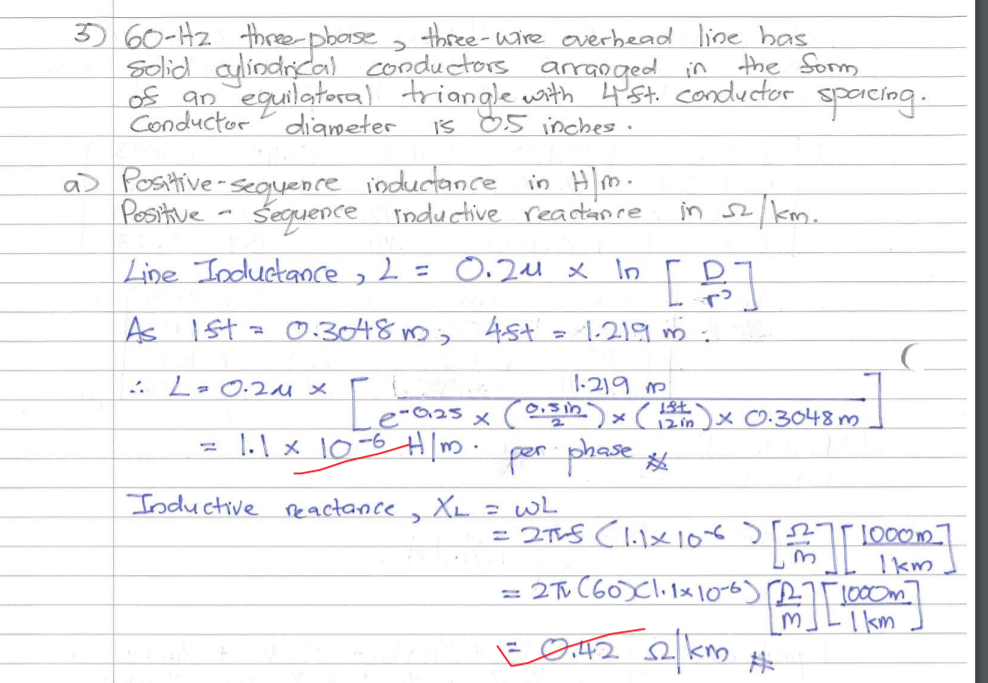 3) 60-Hz three-phase, three-wire overhead line has
solid cylindrical conductors arranged in the form
of an equilateral triangle with 4ft. conductor spacing.
Conductor diameter is 0.5 inches.
a) Positive-sequence inductance in H/m.
Positive - sequence inductive reactance in Ω/km.
Line Inductance, L = 0.2μ × ln [D/r']
As 1ft = 0.3048m, 4ft = 1.219 m.
∴ L = 0.2μ × [1.219 m / e^-0.25 × (0.5in/2) × (1ft/12in) × 0.3048m]
= 1.1 × 10^-6 H/m. per phase #
Inductive reactance, XL = ωL
= 2πf (1.1×10^-6) [Ω/m][1000m/1km]
= 2π(60)(1.1×10^-6)[Ω/m][1000m/1km]
= 0.42 Ω/km #